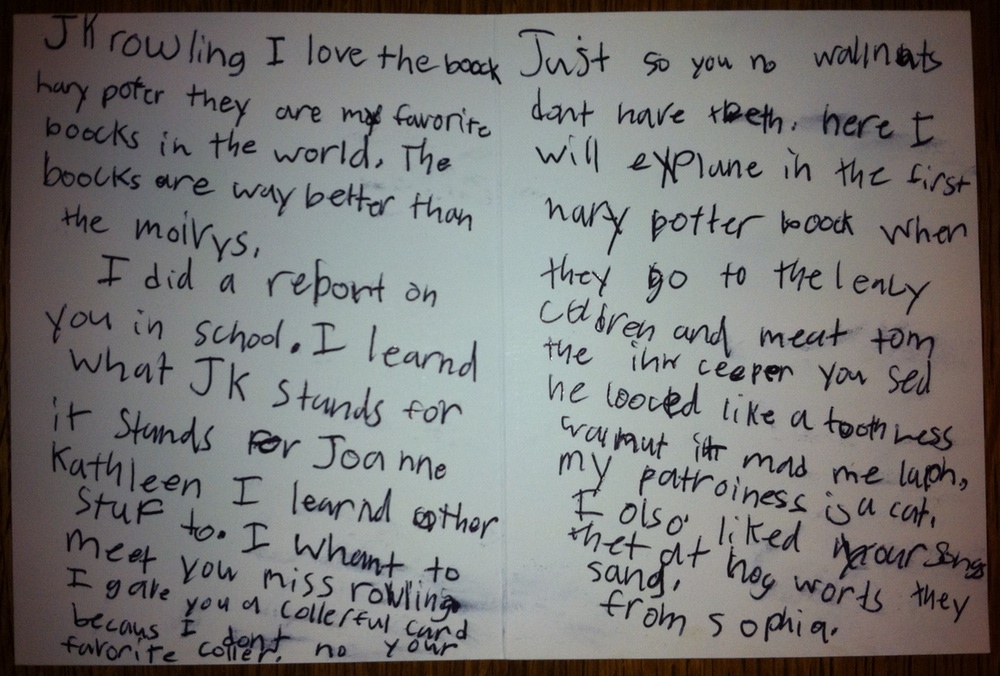 JK rowling I love the boock
hary potcr they are my favorite
boocks in the world. The
boocks are way better than
the moivys.
I did a report on
you in school. I learnd
what JK Stands for
it Stands For Joanne
Kathleen I learnd other
Stuf to. I whant to
meet you miss rowling
I gave you a collerful card
becaus I dont no your
favorite coller.
Just so you no wallnuts
dont have teeth. here I
will explane in the first
hary potter boock when
they go to the leaky
coldren and meat tom
the inn ceeper you sed
he looced like a toothless
walnut it mad me laph.
my patroiness is a cat.
I olso liked your songs
thet at hog words they
sang.
from sophia.